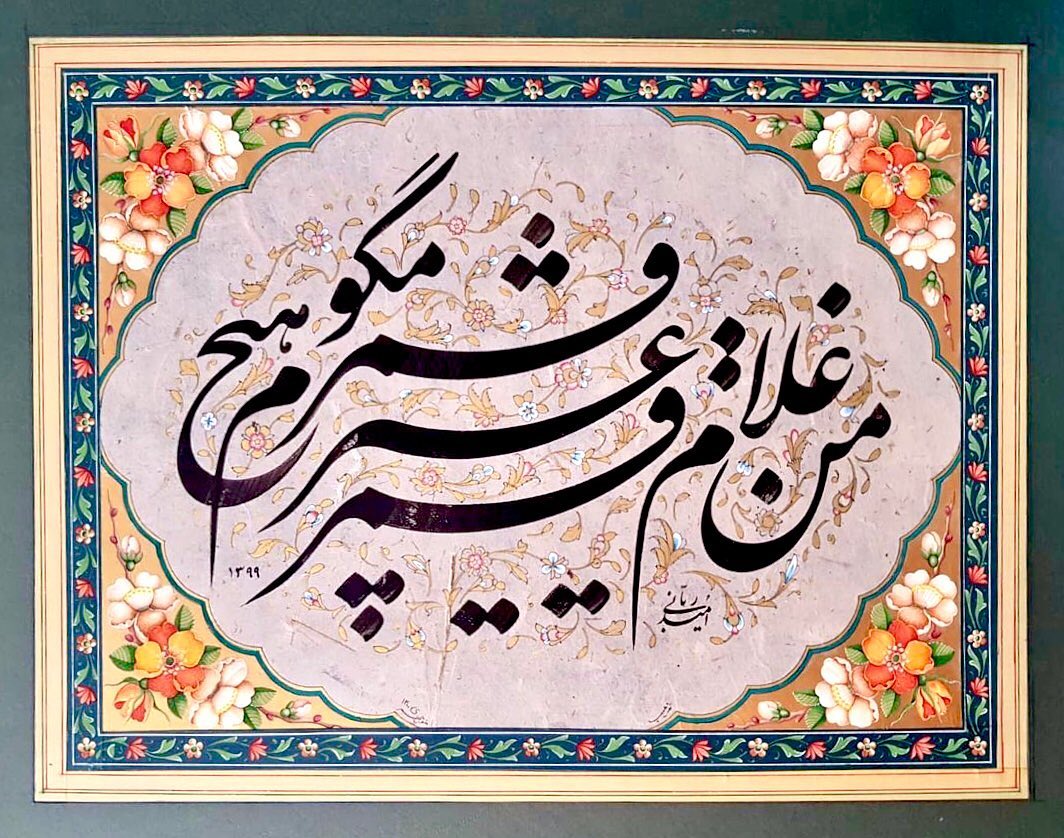 من غلام قمرم غیر قمر هیچ مگو
امید ربانی
۱۳۹۹